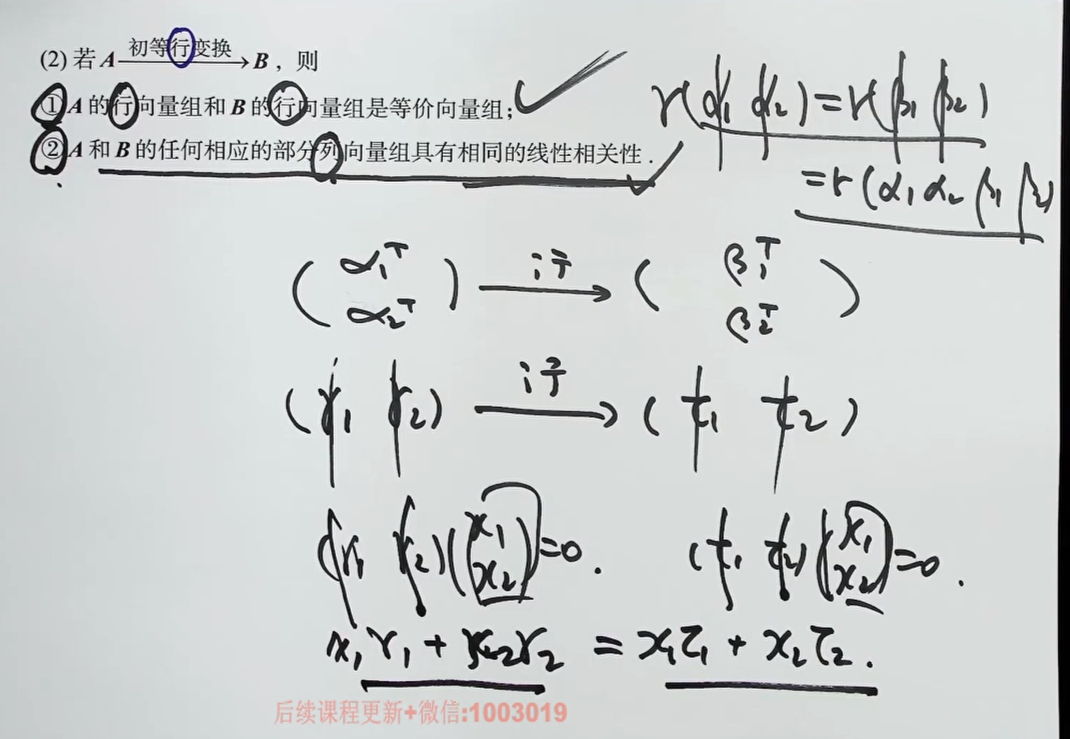 (2) 若 A 初等行变换 → B，则
① A 的行向量组和 B 的行向量组是等价向量组；
② A 和 B 的任何相应的部分列向量组具有相同的线性相关性．
r(α₁ α₂) = r(β₁ β₂)
= r(α₁ α₂ β₁ β₂)
( α₁ᵀ α₂ᵀ ) 行 → ( β₁ᵀ β₂ᵀ )
(γ₁ γ₂) 行 → (τ₁ τ₂)
(γ₁ γ₂)(x₁ x₂) = 0. (τ₁ τ₂)(x₁ x₂) = 0.
x₁γ₁ + x₂γ₂ = x₁τ₁ + x₂τ₂.
后续课程更新+微信:1003019